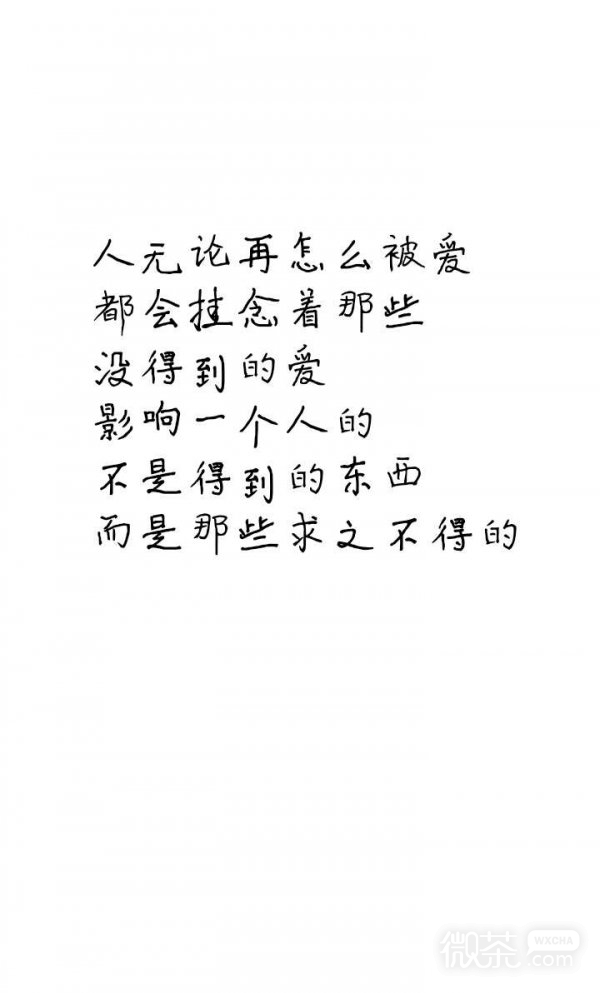 人无论再怎么被爱
都会挂念着那些
没得到的爱
影响一个人的
不是得到的东西
而是那些求之不得的
微茶 WXCHA
.com